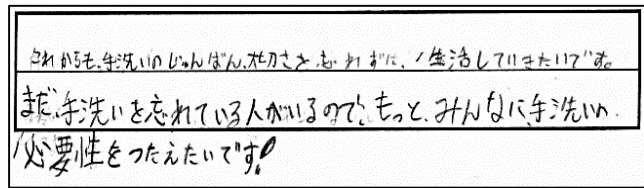 これからも、手洗いのじゅんばん、大切さを忘れずに、生活していきたいです。
まだ、手洗いを忘れている人がいるので、もっと、みんなに手洗いの
必要性をつたえたいです!